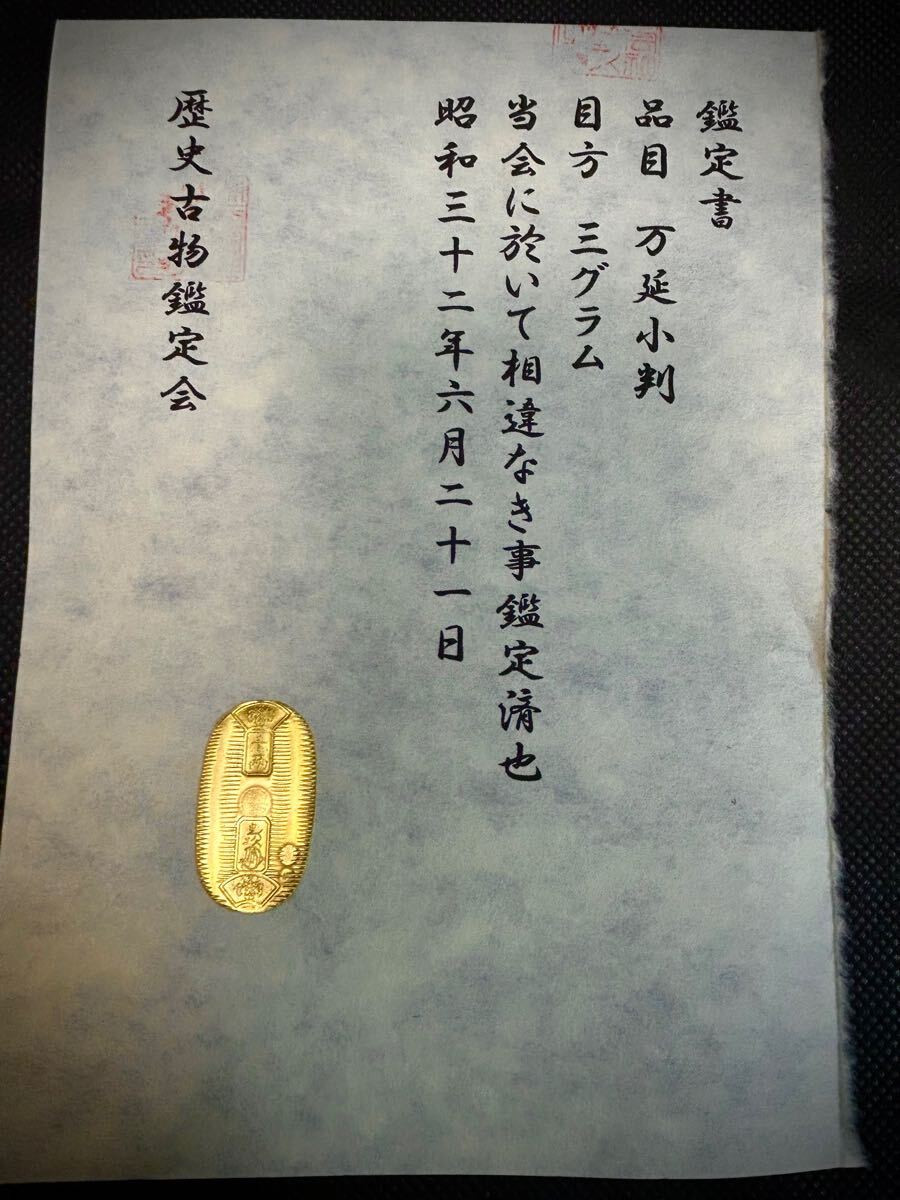 鑑定書
品目 万延小判
目方 三グラム
当会に於いて相違なき事鑑定済也
昭和三十二年六月二十一日
歴史古物鑑定会